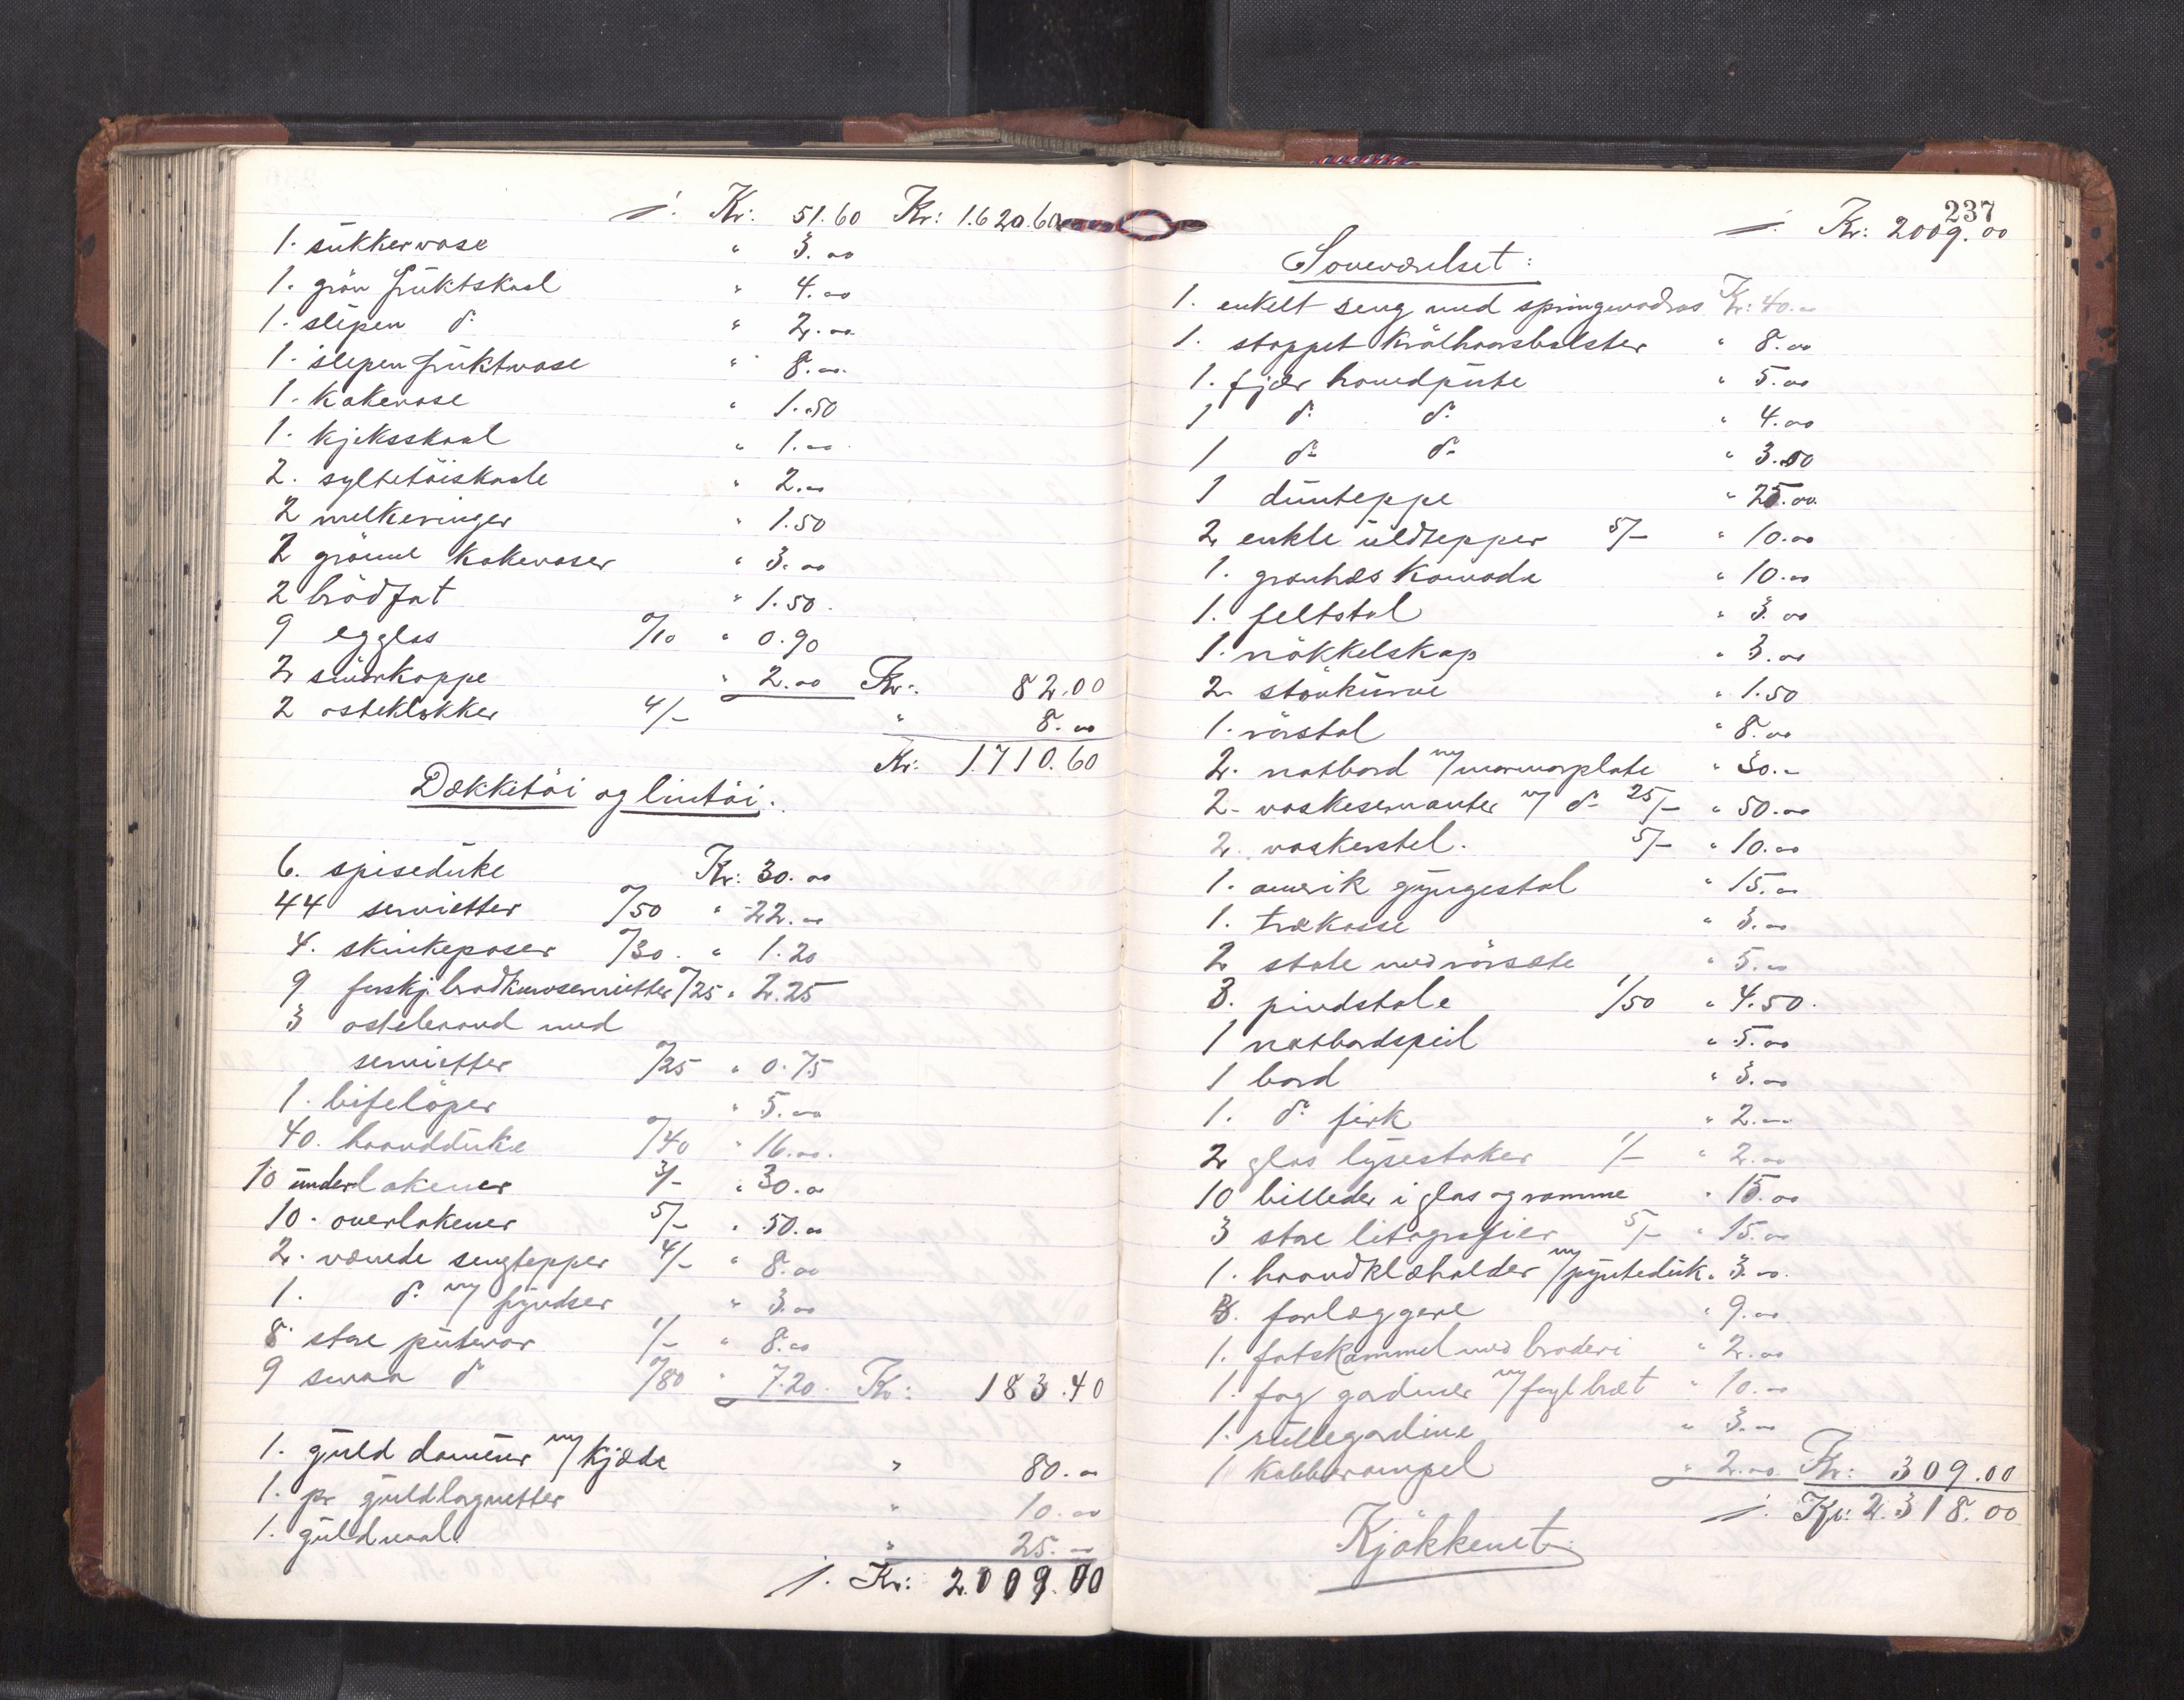 /. Kr: 51.60 Kr: 1.620.60
1. sukkervase " 3.00
1. grön fruktskaal " 4.00
1. slepen do " 2.00
1. slepen fruktvase " 8.00
1. kakevase " 1.50
1. kjeksskaal " 1.00
2. syltetöiskaale " 2.00
2 melkeringer " 1.50
2 grönne kakevaser " 3.00
2 brödfat " 1.50
9 egglas 0/10 " 0.90
2 smörkoppe " 2.00 Kr: 82.00
2 osteklokker 4/- " 8.00
Kr: 1.710.60
Dækketöi og lintöi.
6. spiseduke Kr: 30.00
44 servietter 0/50 " 22.00
4. skinkeposer 0/30. " 1.20
9 forskj. brödkurvservietter 0/25 " 2.25
3 ostebraud med
servietter 0/25 " 0.75
1. bifelöper " 5.00
40. haandduke 0/40 " 16.00
10 underlakener 3/- " 30.00
10. overlakener 5/- " 50.00
2. vævede sengtepper 4/- " 8.00
1. do m/ fryndser " 3.00
8 store putevar 1/- " 8.00
9 smaa do 0/80 " 7.20. Kr: 183.40
1. guld dameur m/ kjæde " 80.00
1. pr guldlorgnetter " 10.00
1. guldnaal " 25.00
/. Kr: 2.009.00
237
/. Kr: 2009.00
Soveværelset:
1. enkelt seng med springmadras Kr: 40.00
1. stoppet krölhaarsbolster " 8.00
1. fjær hovedpute " 5.00
1 do do " 4.00
1 do do " 3.00
1 dunteppe " 25.00
2 enkle uldtepper 5/- " 10.00
1. granhæs komode " 10.00
1. feltstol " 3.00
1. nökkelskap " 3.00
2. stövkurve " 1.50
1. rörstol " 8.00
2. natbord m/ marmorplate " 30.-
2. vaskeservanter m/ do 25/- " 50.00
2. vaskestel. 5/- " 10.00
1. amerik gyngestol " 15.00
1. trækasse " 3.00
2 stole med rörsæte " 5.00
3. pindstole 1/50 " 4.50.
1 natbordspeil " 5.00
1 bord " 3.00
1. do firk " 2.00
2 glas lysestaker 1/- " 2.00
10 billeder i glas og ramme " 15.00
3 store litografier 5/- " 15.00
1. haandklæholder m/ pynteduk " 3.00
3. forlæggere " 9.00
1. fotskammel med broderi " 2.00
1. fag gardiner m/ fuglbræt " 10.00
1. rullegardine " 3.00
1 kobberampel " 2.00 Kr: 309.00
/. Kr: 2.318.00
Kjökkenet: